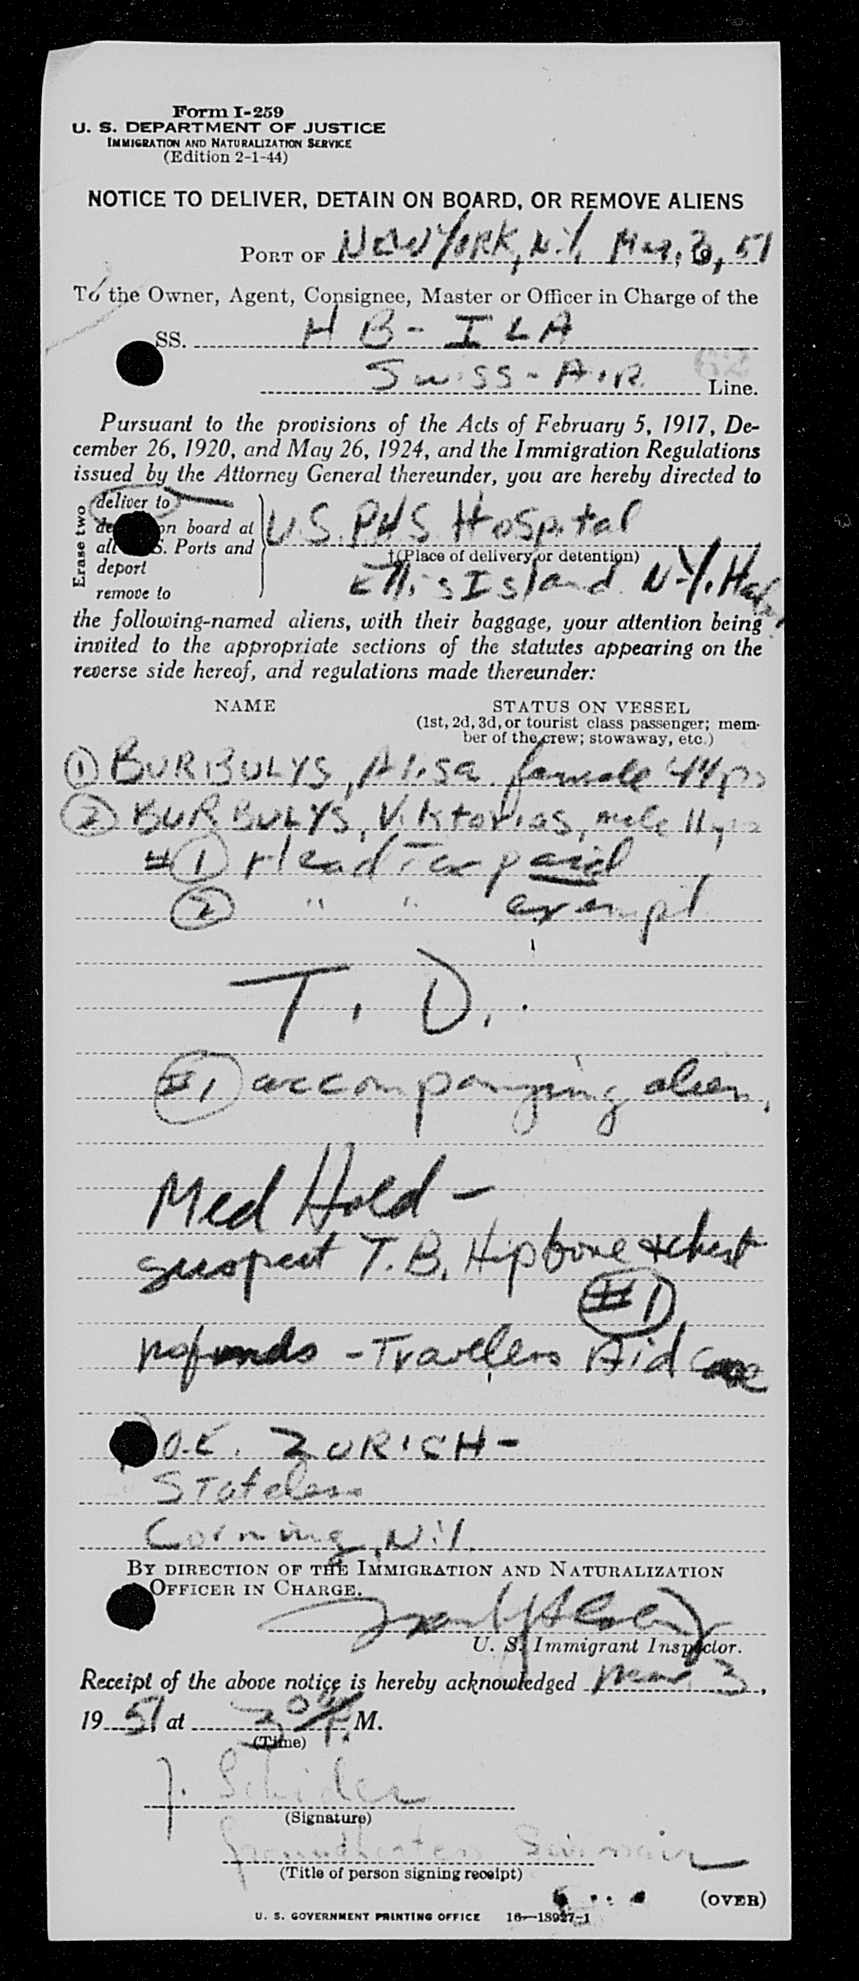 Form I-259
U. S. DEPARTMENT OF JUSTICE
IMMIGRATION AND NATURALIZATION SERVICE
(Edition 2-1-44)
NOTICE TO DELIVER, DETAIN ON BOARD, OR REMOVE ALIENS
PORT OF New York, N.Y. Mar. 3, 51
To the Owner, Agent, Consignee, Master or Officer in Charge of the
SS. HB-ILA
62
Swiss-Air Line.
Pursuant to the provisions of the Acts of February 5, 1917, De-
cember 26, 1920, and May 26, 1924, and the Immigration Regulations
issued by the Attorney General thereunder, you are hereby directed to
Erase two
deliver to
on board at
all S. Ports and
deport
remove to
U.S. PHS Hospital
†(Place of delivery or detention)
Ellis Island N.Y. Har
the following-named aliens, with their baggage, your attention being
invited to the appropriate sections of the statutes appearing on the
reverse side hereof, and regulations made thereunder:
NAME STATUS ON VESSEL
(1st, 2d, 3d, or tourist class passenger; mem-
ber of the crew; stowaway, etc.)
① BURBULYS, Alisa female 44 yrs
② BURBULYS, Viktorias, male 11 yrs
#① Head Tax paid
② " " exempt
T. D.
#1 accompanying alien,
Med Hold -
suspect T.B. Hip bone & chest
#1
no funds - Travelers Aid Case
ZURICH -
Stateless
Corning, N.Y.
BY DIRECTION OF THE IMMIGRATION AND NATURALIZATION
OFFICER IN CHARGE.
U. S. Immigrant Inspector.
Receipt of the above notice is hereby acknowledged Mar. 3,
1951 at 3 00 P. M.
(Time)
J.
(Signature)
Swissair
(Title of person signing receipt)
(OVER)
U. S. GOVERNMENT PRINTING OFFICE 16—18927-1